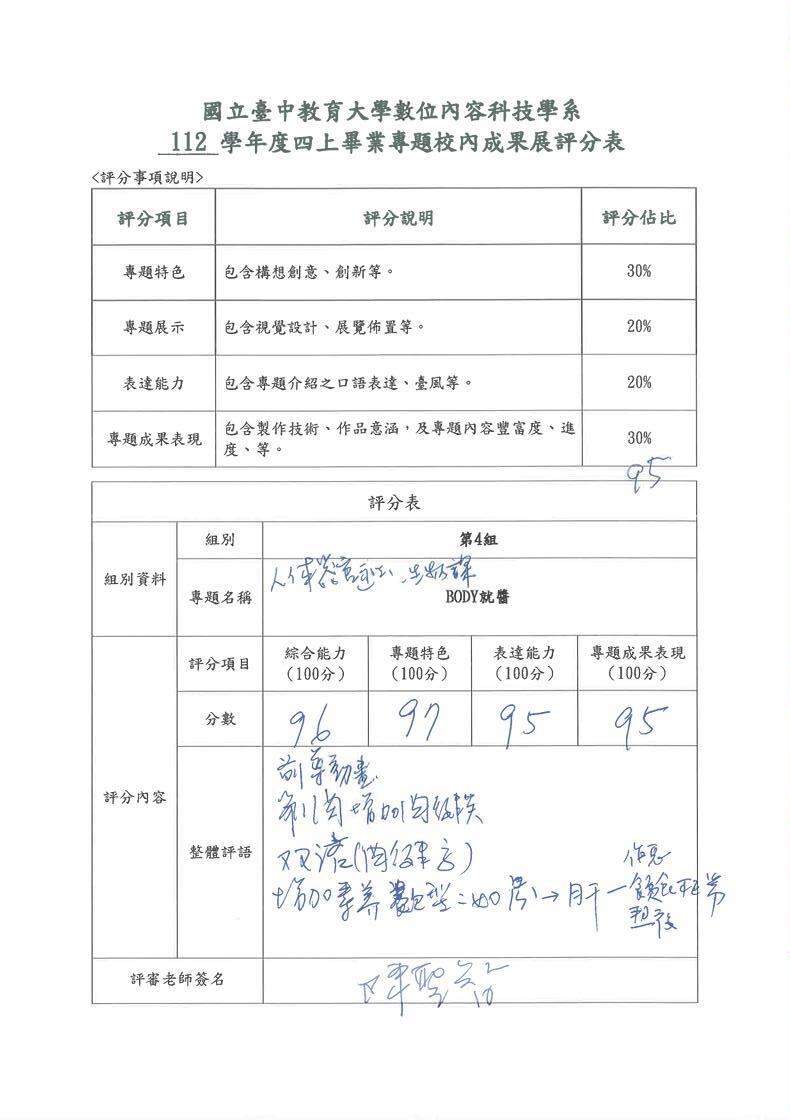 國立臺中教育大學數位內容科技學系
112 學年度四上畢業專題校內成果展評分表
<評分事項說明>
評分項目 評分說明 評分佔比
專題特色 包含構想創意、創新等。 30%
專題展示 包含視覺設計、展覽佈置等。 20%
表達能力 包含專題介紹之口語表達、臺風等。 20%
專題成果表現 包含製作技術、作品意涵，及專題內容豐富度、進
度、等。 30%
95
評分表
組別資料 組別 第4組
人体器官
專題名稱 BODY就醬
評分項目 綜合能力 專題特色 表達能力 專題成果表現
(100分) (100分) (100分) (100分)
分數 96 97 95 95
評分內容
前導動畫
整體評語
双语
增加素養題型:如
評審老師簽名